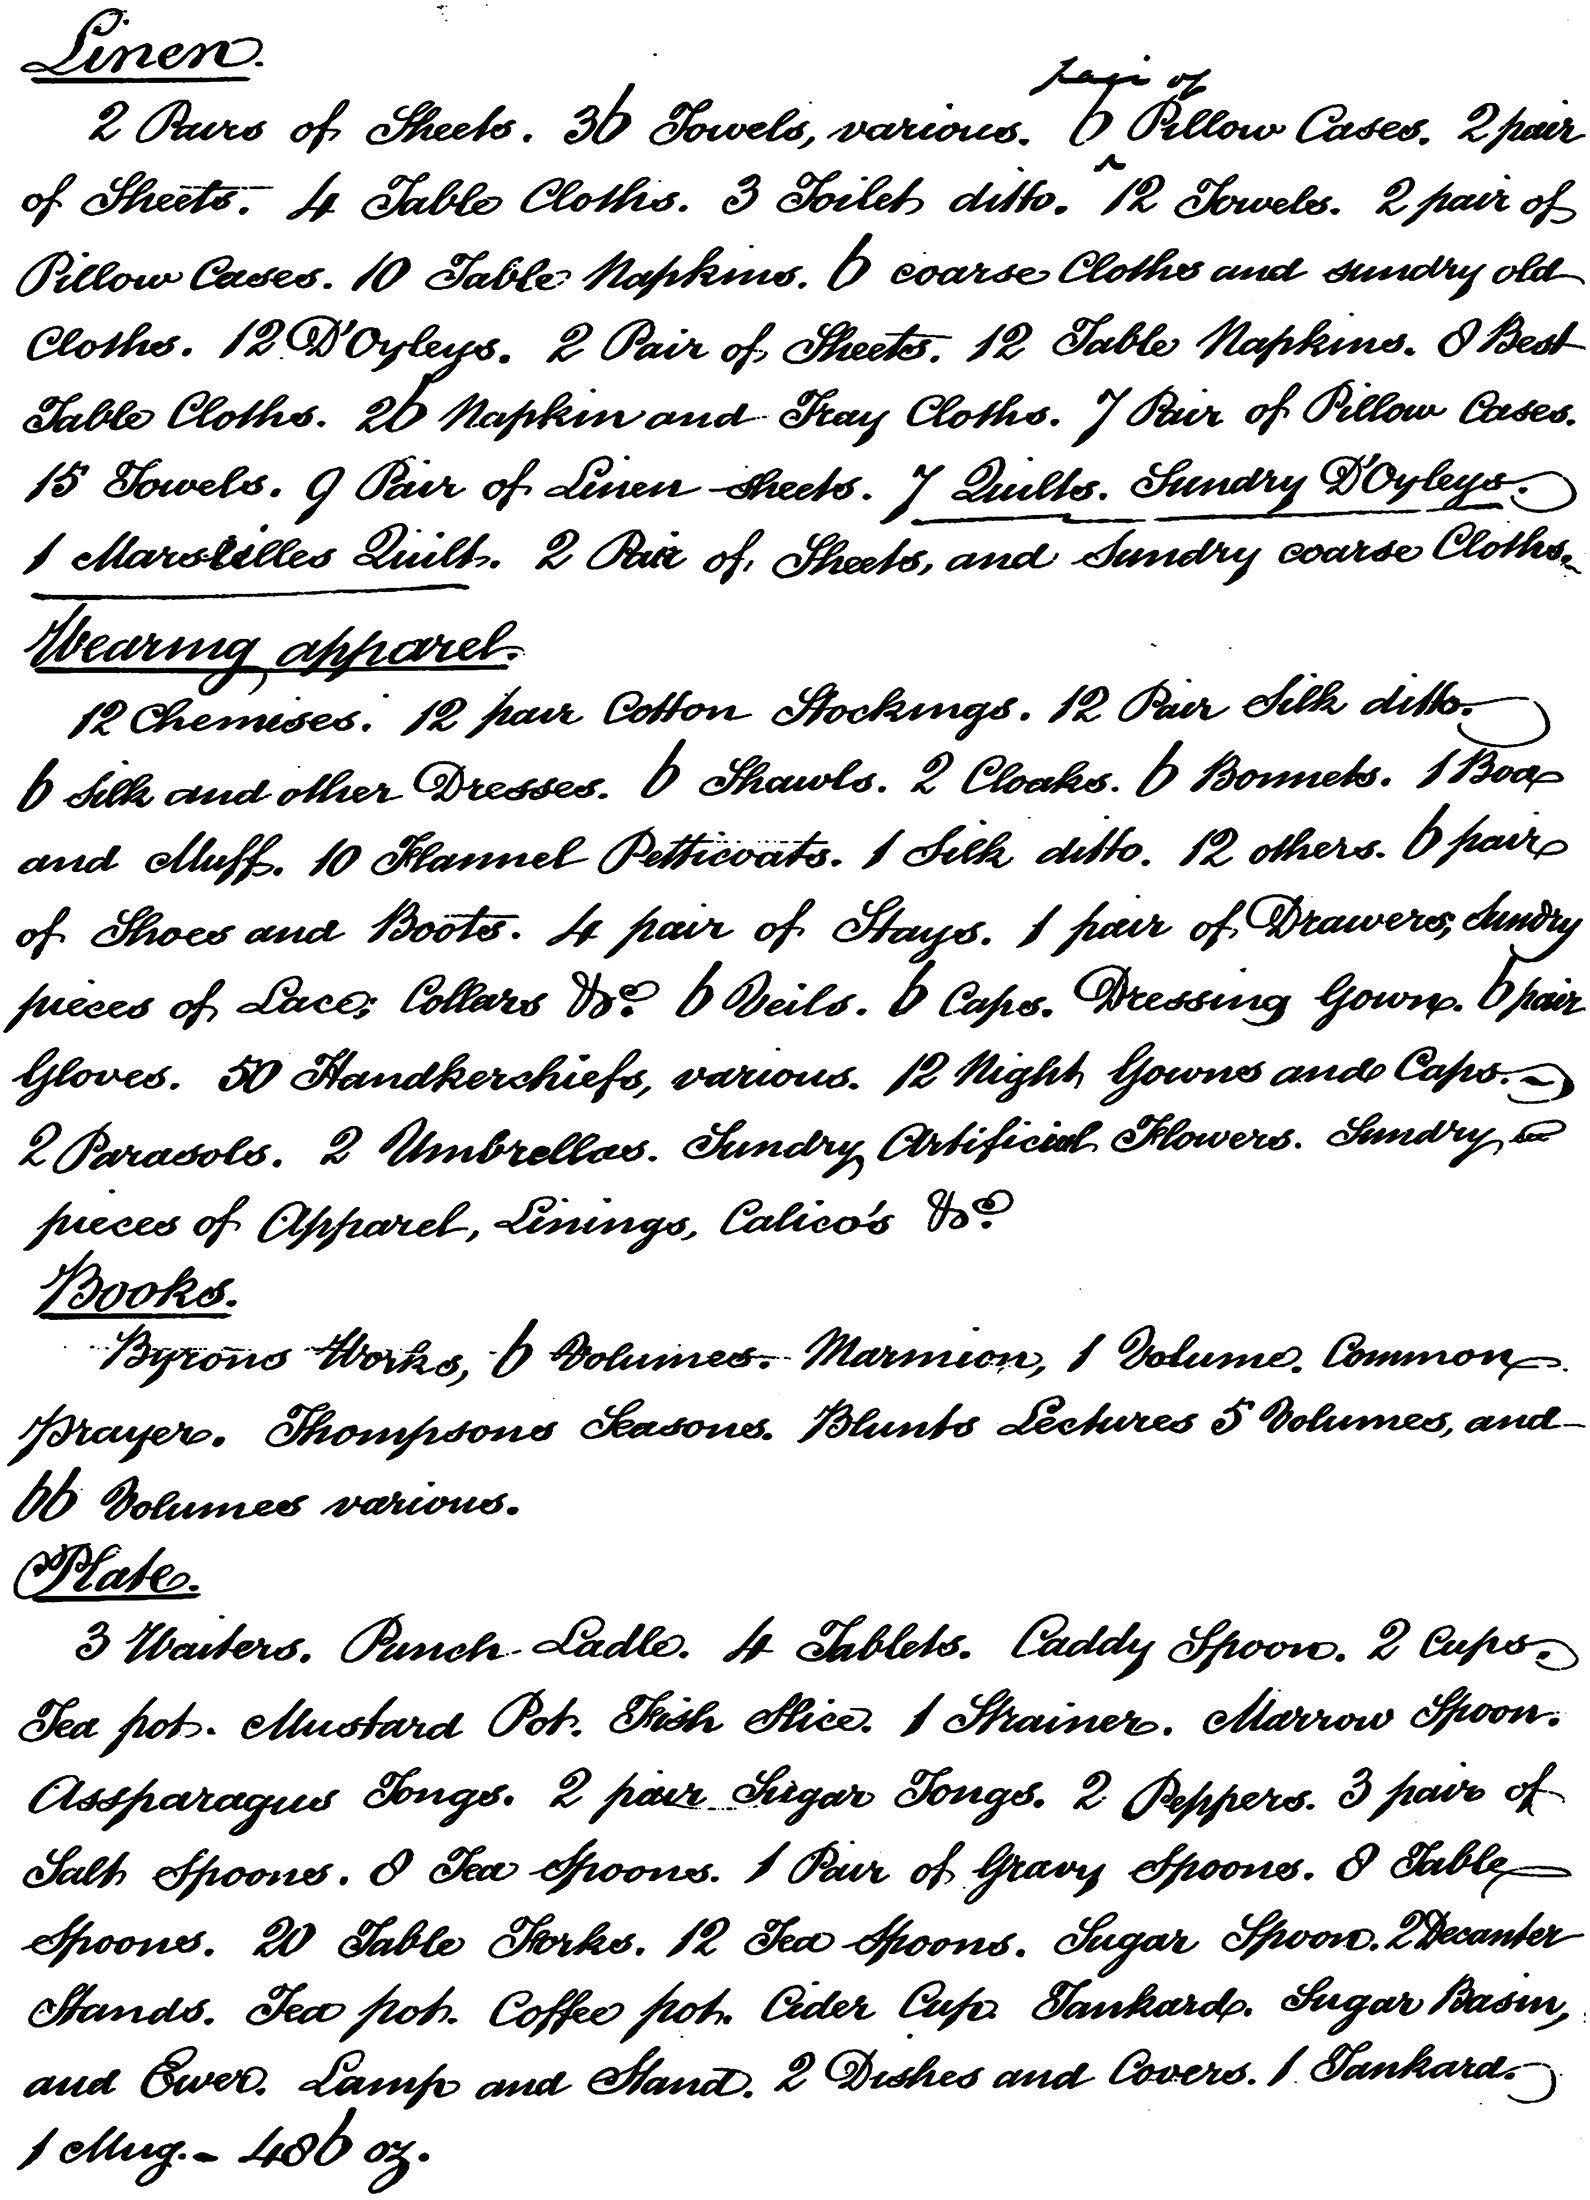 Linen.
pair of
2 Pairs of Sheets. 36 Towels, various. 6 Pillow Cases. 2 pair
of Sheets. 4 Table Cloths. 3 Toilet ditto. 12 Towels. 2 pair of
Pillow Cases. 10 Table Napkins. 6 coarse Cloths and sundry old
Cloths. 12 D'Oyleys. 2 Pair of Sheets. 12 Table Napkins. 8 Best
Table Cloths. 26 Napkin and Tray Cloths. 7 Pair of Pillow Cases.
15 Towels. 9 Pair of Linen sheets. 7 Quilts. Sundry D'Oyleys.
1 Marseilles Quilt. 2 Pair of Sheets, and Sundry coarse Cloths.
Wearing apparel.
12 Chemises. 12 pair Cotton Stockings. 12 Pair Silk ditto.
6 Silk and other Dresses. 6 Shawls. 2 Cloaks. 6 Bonnets. 1 Boa
and Muff. 10 Flannel Petticoats. 1 Silk ditto. 12 others. 6 pair
of Shoes and Boots. 4 pair of Stays. 1 pair of Drawers, Sundry
pieces of Lace; Collars &c. 6 Veils. 6 Caps. Dressing Gown. 6 pair
Gloves. 50 Handkerchiefs, various. 12 Night Gowns and Caps.
2 Parasols. 2 Umbrellas. Sundry Artificial Flowers. Sundry
pieces of Apparel, Linings, Calico's &c.
Books.
Byrons Works, 6 Volumes. Marmion, 1 Volume. Common
Prayer. Thompsons Seasons. Blunts Lectures 5 Volumes, and
66 Volumes various.
Plate.
3 Waiters. Punch Ladle. 4 Tablets. Caddy Spoon. 2 Cups.
Tea pot. Mustard Pot. Fish Slice. 1 Strainer. Marrow Spoon.
Assparagus Tongs. 2 pair Sugar Tongs. 2 Peppers. 3 pair of
Salt Spoons. 8 Tea Spoons. 1 Pair of Gravy Spoons. 8 Table
Spoons. 20 Table Forks. 12 Tea Spoons. Sugar Spoon. 2 Decanter
Stands. Tea pot. Coffee pot. Cider Cup. Tankard. Sugar Basin,
and Ewer. Lamp and Stand. 2 Dishes and Covers. 1 Tankard.
1 Mug. - 486 oz.